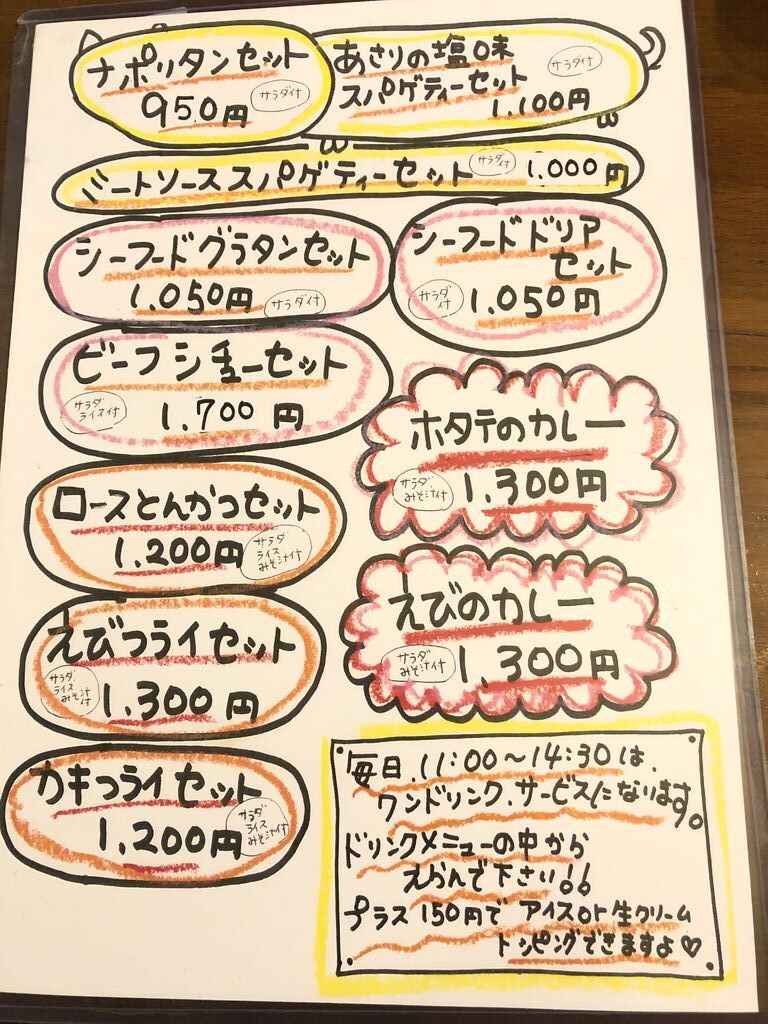 ナポリタンセット
950円
サラダ付
あさりの塩味
スパゲティーセット
サラダ付
1.100円
ミートソーススパゲティーセット
サラダ付
1.000円
シーフードグラタンセット
1.050円
サラダ付
シーフードドリア
セット
サラダ
付
1.050円
ビーフシチューセット
サラダ
ライス付
1.700円
ホタテのカレー
サラダ
みそ汁付
1.300円
ロースとんかつセット
1.200円
サラダ
ライス
みそ汁付
えびのカレー
サラダ
みそ汁付
1.300円
えびフライセット
サラダ
ライス
みそ汁
付
1.300円
カキフライセット
1.200円
サラダ
ライス
みそ汁付
毎日.11:00~14:30は.
ワンドリンク.サービスになります。
ドリンクメニューの中から
えらんで下さい!!
プラス150円でアイスor生クリーム
トッピングできますよ♡